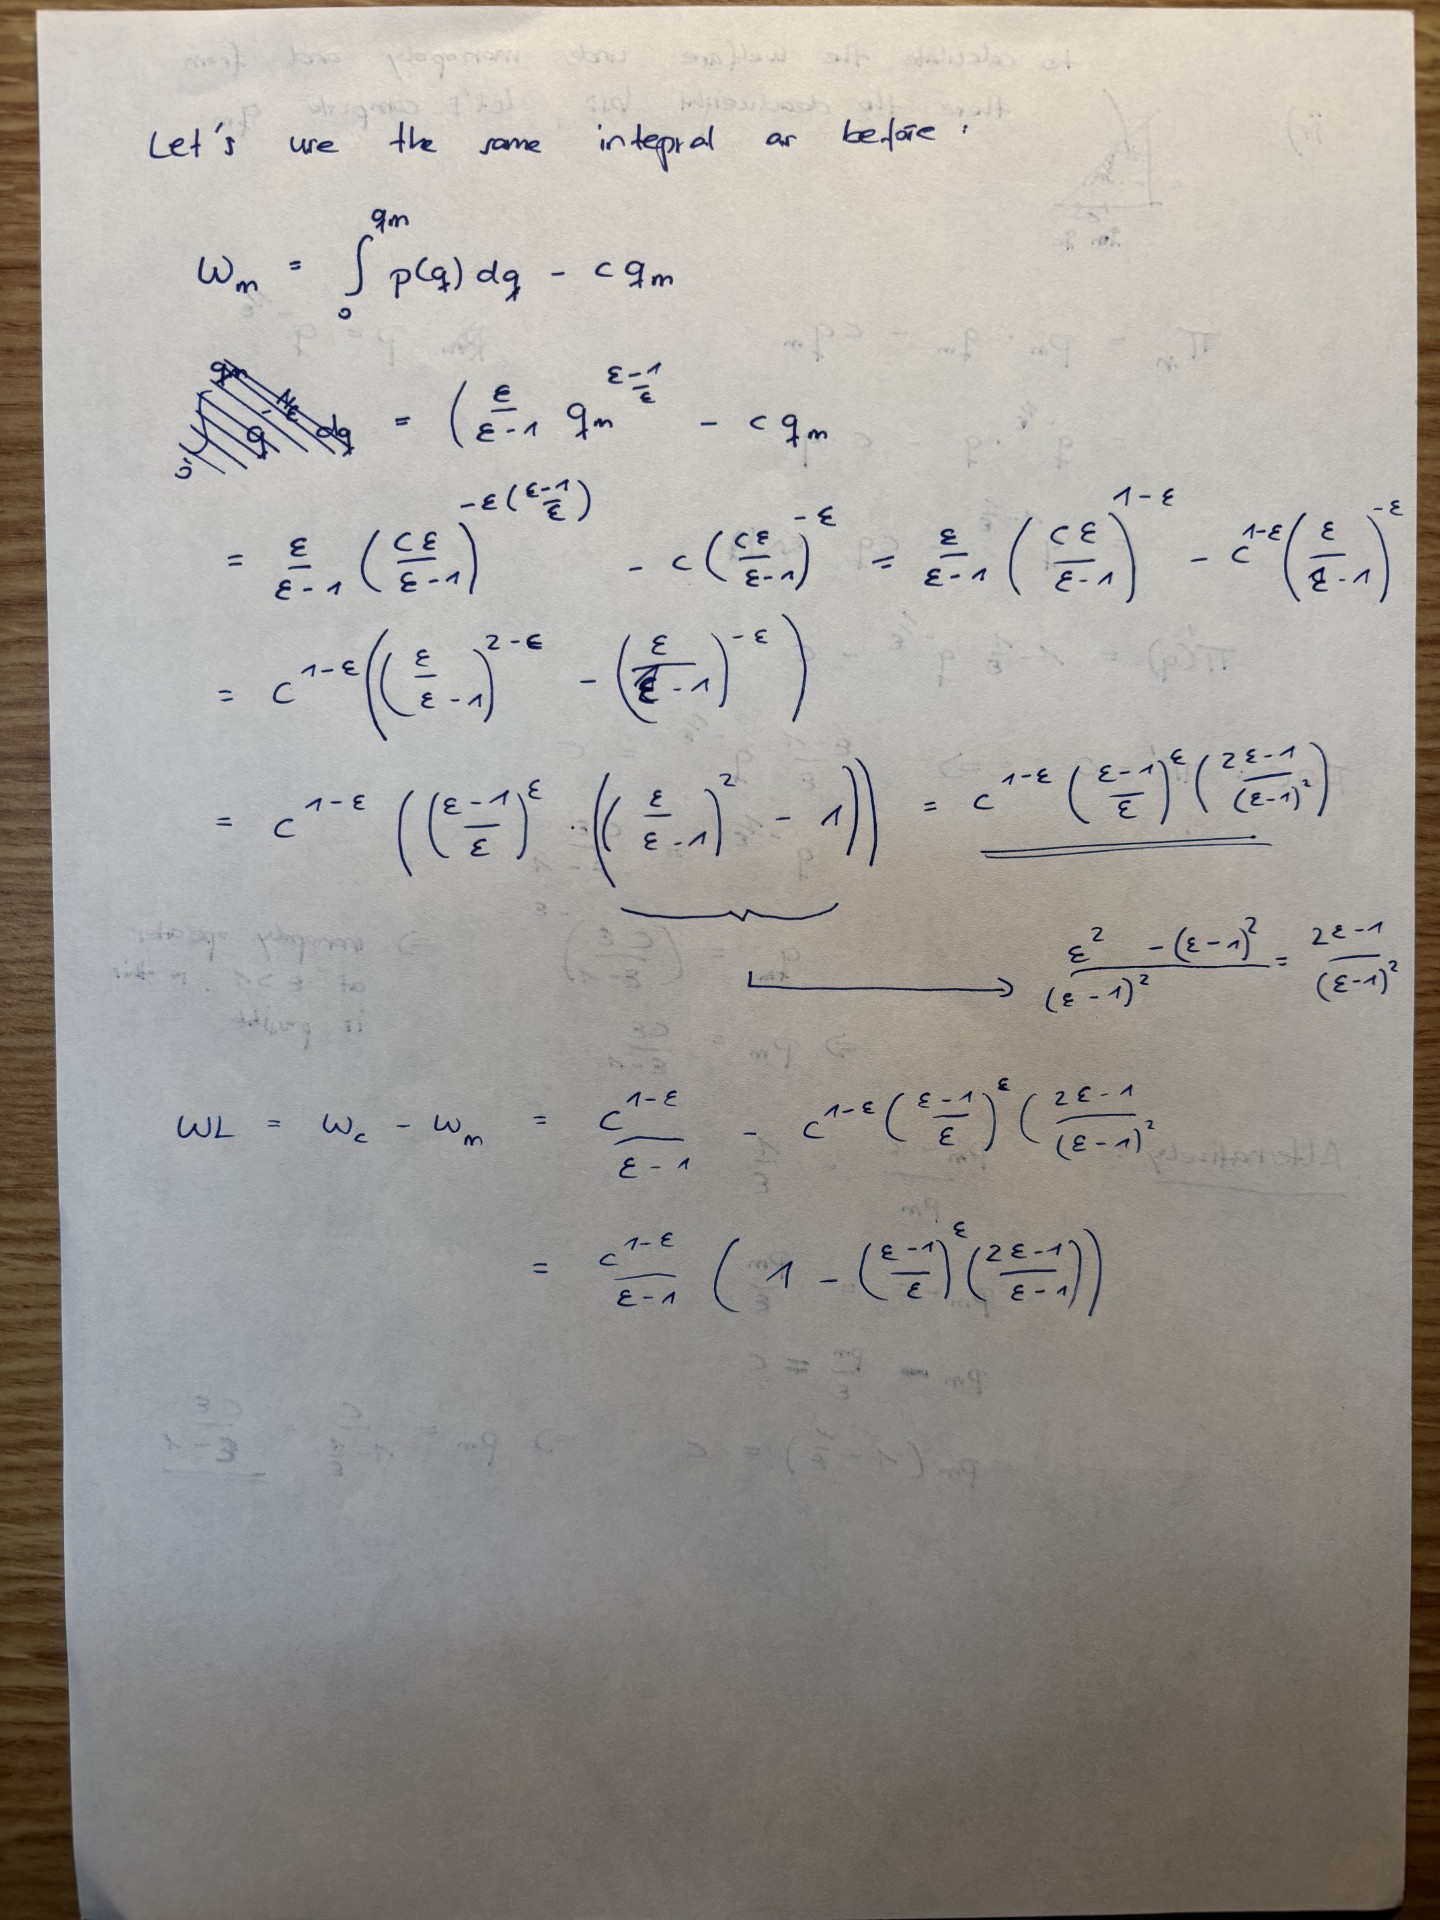 Let's use the same integral as before:
W_m = ∫_0^{q_m} p(q) dq - c q_m
= ( ε/(ε-1) q_m^{(ε-1)/ε} - c q_m
= ε/(ε-1) (cε/(ε-1))^{-ε((ε-1)/ε)} - c (cε/(ε-1))^{-ε} = ε/(ε-1) (cε/(ε-1))^{1-ε} - c^{1-ε} (ε/(ε-1))^{-ε}
= c^{1-ε} ((ε/(ε-1))^{2-ε} - (ε/(ε-1))^{-ε})
= c^{1-ε} (((ε-1)/ε)^ε · ((ε/(ε-1))^2 - 1)) = c^{1-ε} ((ε-1)/ε)^ε ((2ε-1)/(ε-1)^2)
→ (ε^2 - (ε-1)^2)/(ε-1)^2 = (2ε-1)/(ε-1)^2
WL = W_c - W_m = c^{1-ε}/(ε-1) - c^{1-ε} ((ε-1)/ε)^ε ( (2ε-1)/(ε-1)^2
= c^{1-ε}/(ε-1) ( 1 - ((ε-1)/ε)^ε ((2ε-1)/(ε-1)))